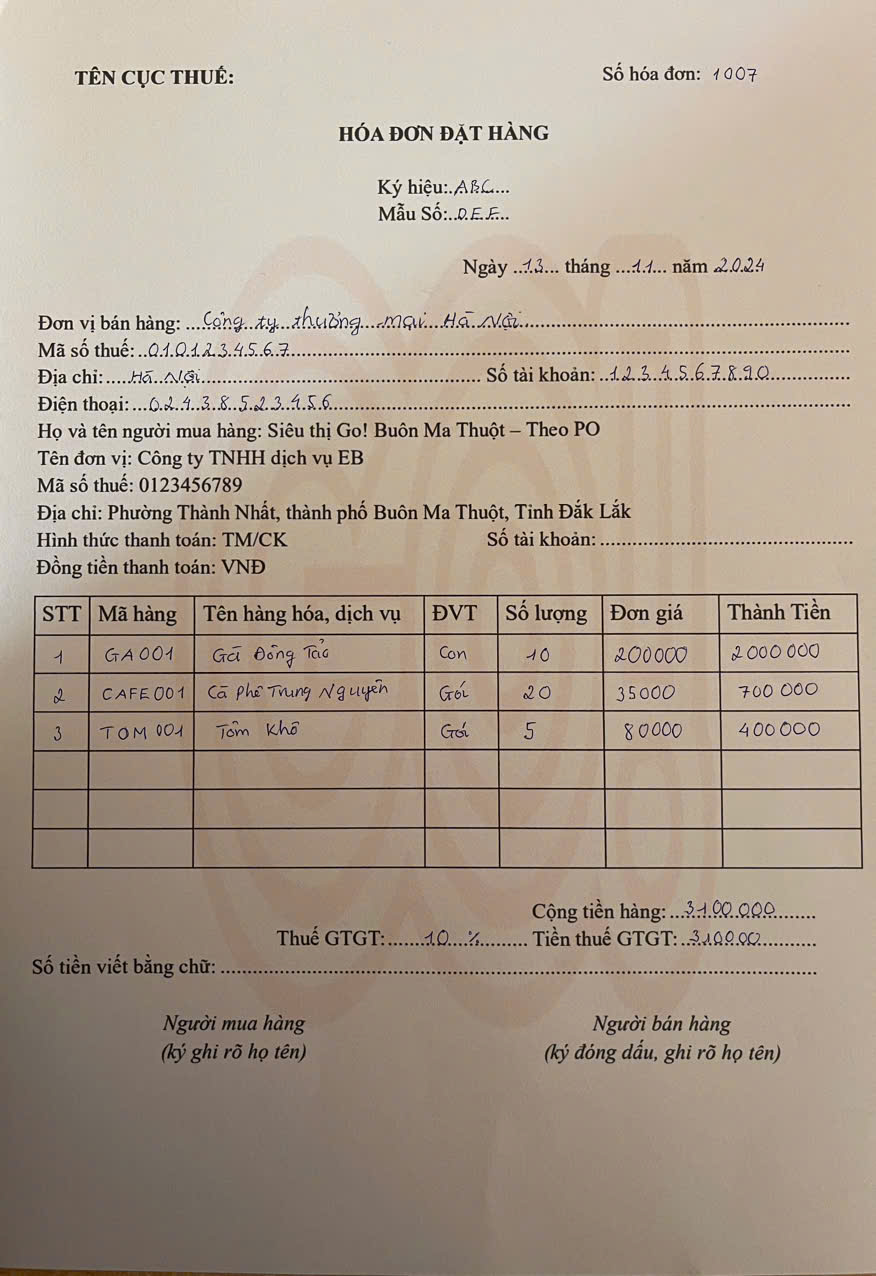 TÊN CỤC THUẾ: Số hóa đơn: 1007
HÓA ĐƠN ĐẶT HÀNG
Ký hiệu: ABC
Mẫu Số: D.E.F.
Ngày 13 tháng 11 năm 2024
Đơn vị bán hàng: Công ty thương mại Hà Nội
Mã số thuế: 0101234567
Địa chỉ: Hà Nội Số tài khoản: 1234567890
Điện thoại: 02438523456
Họ và tên người mua hàng: Siêu thị Go! Buôn Ma Thuột – Theo PO
Tên đơn vị: Công ty TNHH dịch vụ EB
Mã số thuế: 0123456789
Địa chỉ: Phường Thành Nhất, thành phố Buôn Ma Thuột, Tỉnh Đắk Lắk
Hình thức thanh toán: TM/CK Số tài khoản:
Đồng tiền thanh toán: VNĐ
STT Mã hàng Tên hàng hóa, dịch vụ ĐVT Số lượng Đơn giá Thành Tiền
1 GA001 Gà Đông Tảo Con 10 200000 2000 000
2 CAFE001 Cà phê Trung Nguyên Gói 20 35000 700 000
3 TOM 001 Tôm Khô Gói 5 80000 400000
Cộng tiền hàng: 3100.000
Thuế GTGT: 10 % Tiền thuế GTGT: 310000
Số tiền viết bằng chữ:
Người mua hàng Người bán hàng
(ký ghi rõ họ tên) (ký đóng dấu, ghi rõ họ tên)